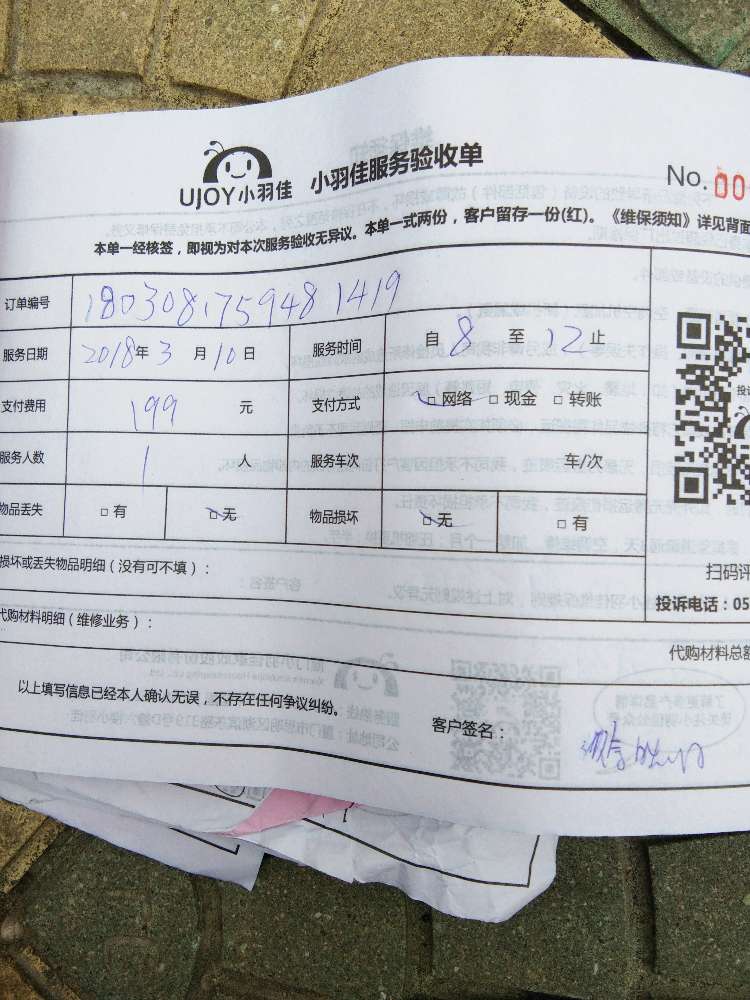 UJOY小羽佳 小羽佳服务验收单
No. 00
本单一经核签，即视为对本次服务验收无异议。本单一式两份，客户留存一份(红)。《维保须知》详见背面
订单编号 180308175948 1419
服务日期 2018年 3 月 10 日 服务时间 自 8 至 12 止
支付费用 199 元 支付方式 □ 网络 □ 现金 □ 转账
服务人数 1 人 服务车次 车/次
物品丢失 □ 有 □ 无 物品损坏 □ 无 □ 有
损坏或丢失物品明细（没有可不填）：
扫码评
投诉电话：05
代购材料明细（维修业务）：
代购材料总额
以上填写信息已经本人确认无误，不存在任何争议纠纷。
客户签名：